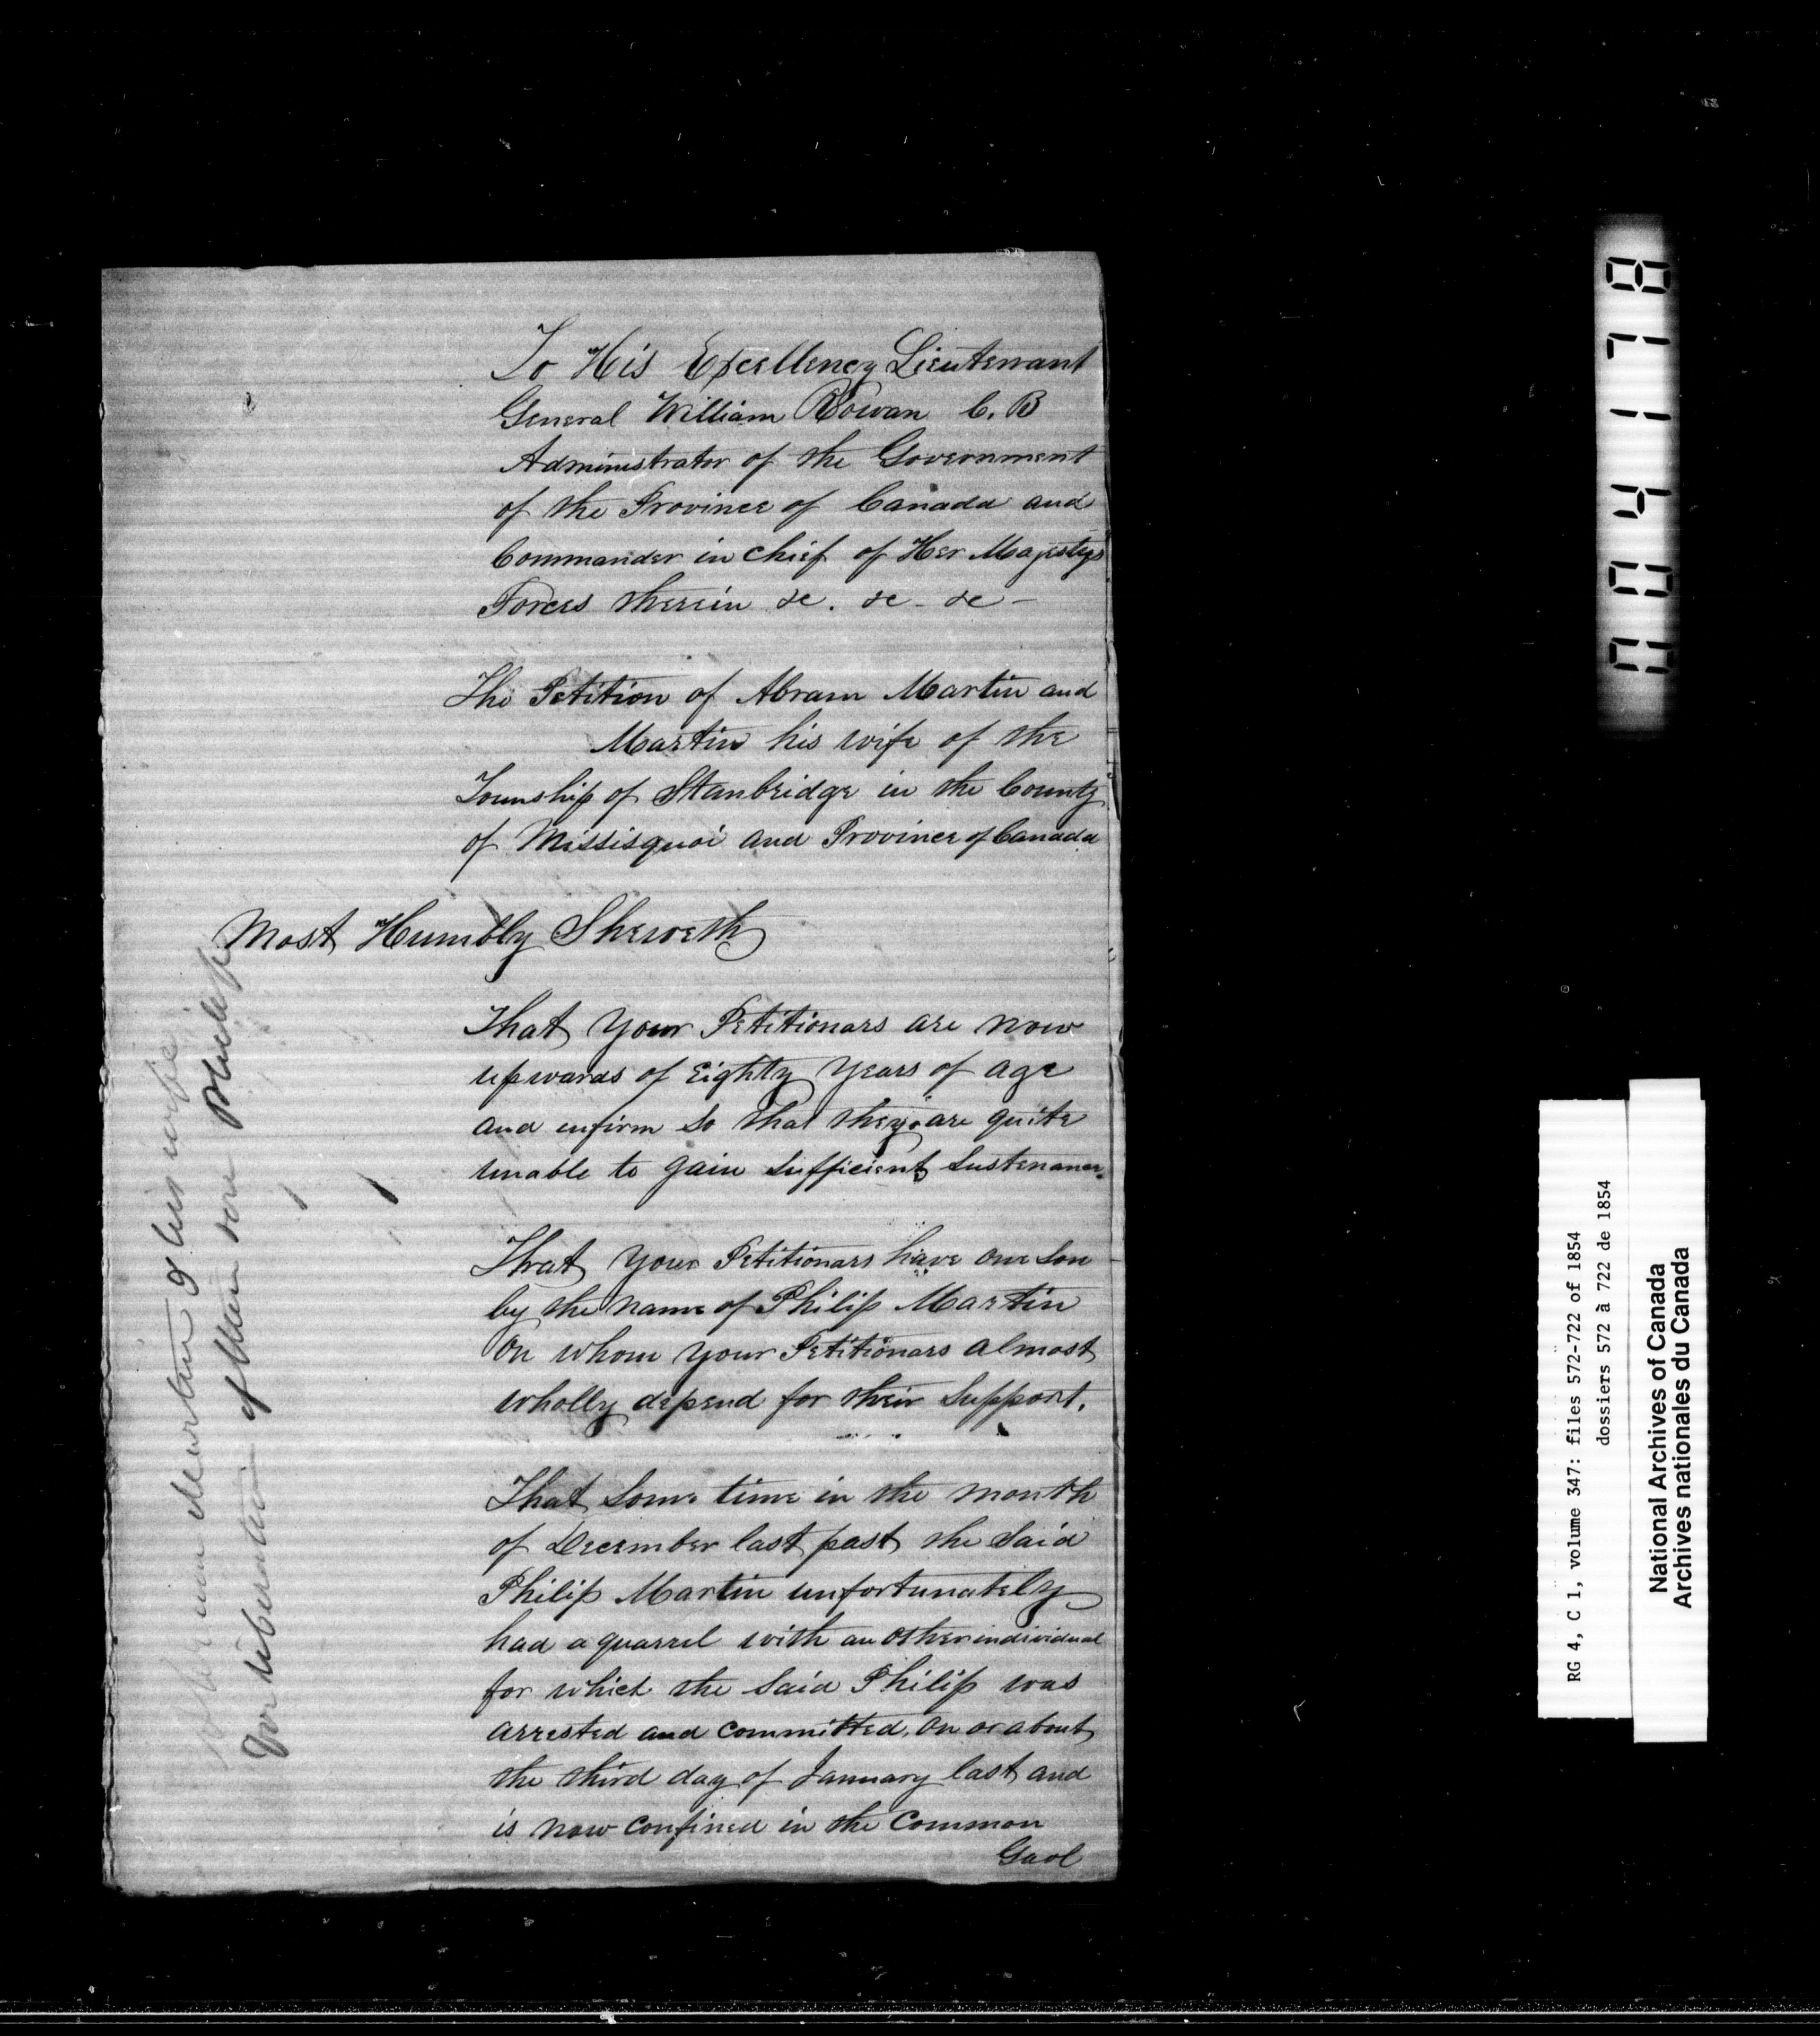 To His Excellency Lieutenant
General William Rowan C. B
Administrator of the Government
of the Province of Canada and
Commander in chief of Her Majestys
Forces therein &c. &c - &c -
The Petition of Abram Martin and
Martin his wife of the
Township of Stanbridge in the County
of Missisquoi and Province of Canada
Most Humbly Sheweth
That your Petitionars are now
upwards of Eighty Years of age
and infirm so that they are quite
unable to gain sufficient sustenance.
That your Petitionars have one son
by the name of Philip Martin
On whom your Petitionars almost
wholly depend for their support.
That some time in the month
of December last past the said
Philip Martin unfortunately
had a quarrel with an other individual
for which the said Philip was
arrested and committed, on or about
the third day of January last and
is now confined in the Common
Gaol
Abram Martin & his wife
for liberation of their son Philip
0041718
RG 4, C 1, volume 347: files 572-722 of 1854
dossiers 572 à 722 de 1854
National Archives of Canada
Archives nationales du Canada